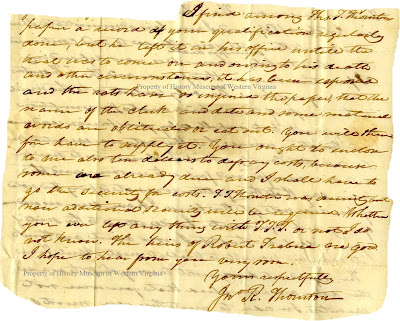 I find among Thos. T. Thornton
papers a record of your qualification regularly
done, but he left it in his office untill the
trial was to come on and owing to his death
and other circumstances, it has been exposed
and the rats have so injured the paper, that the
Property of History Museum of Western Virginia
names of the clerk and date and some material
words are obliterated or eat out. You will there
fore have to supply it. You ought to inclose
to me also ten dollars to defray costs, because
some are already due and I shall have to
go the security for costs. T. T. Thornton was surety and
now additional security will be required. Whether
you ever left anything with T.T.T. or not I do
not know. The heirs of Robert Trabue are good
Property of History Museum of Western Virginia
I hope to hear from you very soon.
Yours respectfully
Jno. R. Thornton